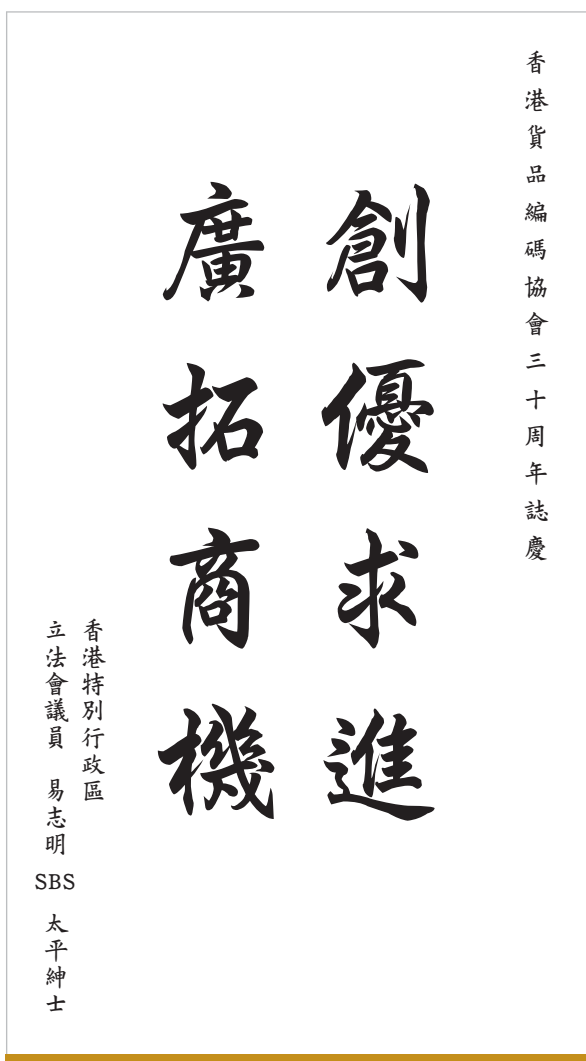 香港貨品編碼協會三十周年誌慶
創優求進
廣拓商機
香港特別行政區
立法會議員 易志明 SBS 太平紳士